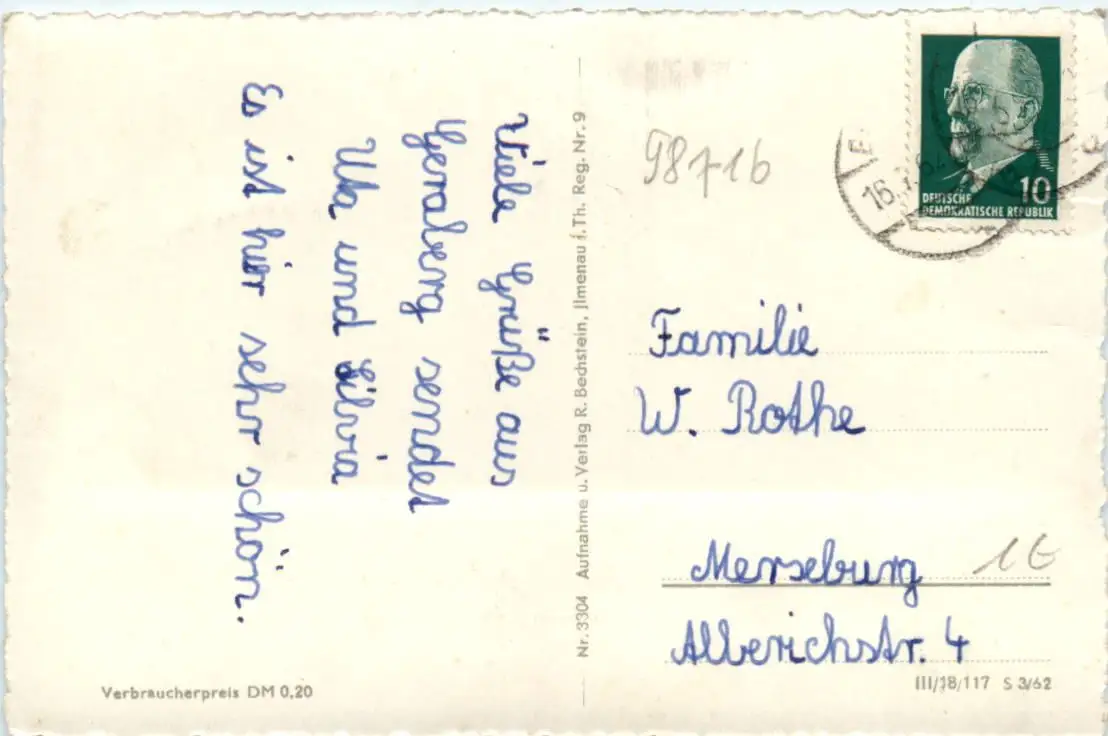 Viele Grüße aus
Geraberg sendet
Uta und Silvia
Es ist hier sehr schön.
Verbraucherpreis DM 0,20
Nr. 3304 Aufnahme u. Verlag R. Bechstein, Jlmenau i. Th. Reg.-Nr. 9
98716
DEUTSCHE
DEMOKRATISCHE REPUBLIK
10
Familie
W. Rothe
Merseburg
1€
Alberichstr. 4
III/18/117 S 3/62